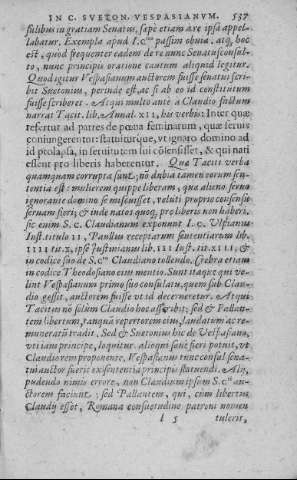 IN C. SVETON. VESPASIANVM. 537
sulibus in gratiam Senatus, sæpe etiam axe ipsa appel-
labatur. Exempla apud I. C.tos passim obuia. atq; hoc
est, quod frequenter eadem de re nunc Senatusconsul-
to, nunc principis oratione cautum aliquid legitur.
Quod igitur Vespasianum auctorem fuisse senatui scri-
bit Suetonius, perinde est, ac si ab eo id constitutum
fuisse scriberet. Atqui multo ante a Claudio factum
narrat Tacit. lib. Annal. XII, his verbis: Inter quæ
refertur ad patres de pœna feminarum, quæ seruis
coniungerentur: statuiturque, vt ignaro domino ad
id prolapsa, in seruitutem sui cõsensisset, & qui nati
essent pro liberis haberentur. Quæ Taciti verba
quamquam corrupta sunt; nõ dubia tamen eorum sen-
tentia est: mulierem quippe liberam, quæ alieno seruo
ignorante domino se miscuisset, veluti proprio consensu
seruam fieri; & inde natos quoq; pro liberis non haberi.
sic enim S. C. Claudianum exponunt I. C. Vlpianus
Inst. titulo II, Paullus receptarum sententiarum lib.
IIII tit. X, ipse Iustinianus lib. III Inst. tit. XIII, &
in codice suo de S. C.to Claudiano tollendo. Crebra etiam
in codice Theodosiano eius mentio. Sunt itaque qui ve-
lint Vespasianum primo suo consulatu, quem sub Clau-
dio gessit, auctorem fuisse vt id decerneretur. Atqui
Tacitus nõ solum Claudio hoc ascribit; sed & Pallan-
tem libertum, tanquã repertorem eius, laudatum ac re-
muneratũ tradit. Sed & Suetonius hic de Vespasiano,
vti iam principe, loquitur. alioqui sane fieri potuit, vt
Claudio rem proponente, Vespasianus tunc consul sena-
tui auctor fuerit ex sententia principis statuendi. Alij,
pudendo nimis errore, non Claudium ipsum S. C.ti au-
ctorem faciunt: sed Pallantem, qui, cum libertus
Claudij esset, Romana consuetudine patroni nomen
l 5 tulerit,